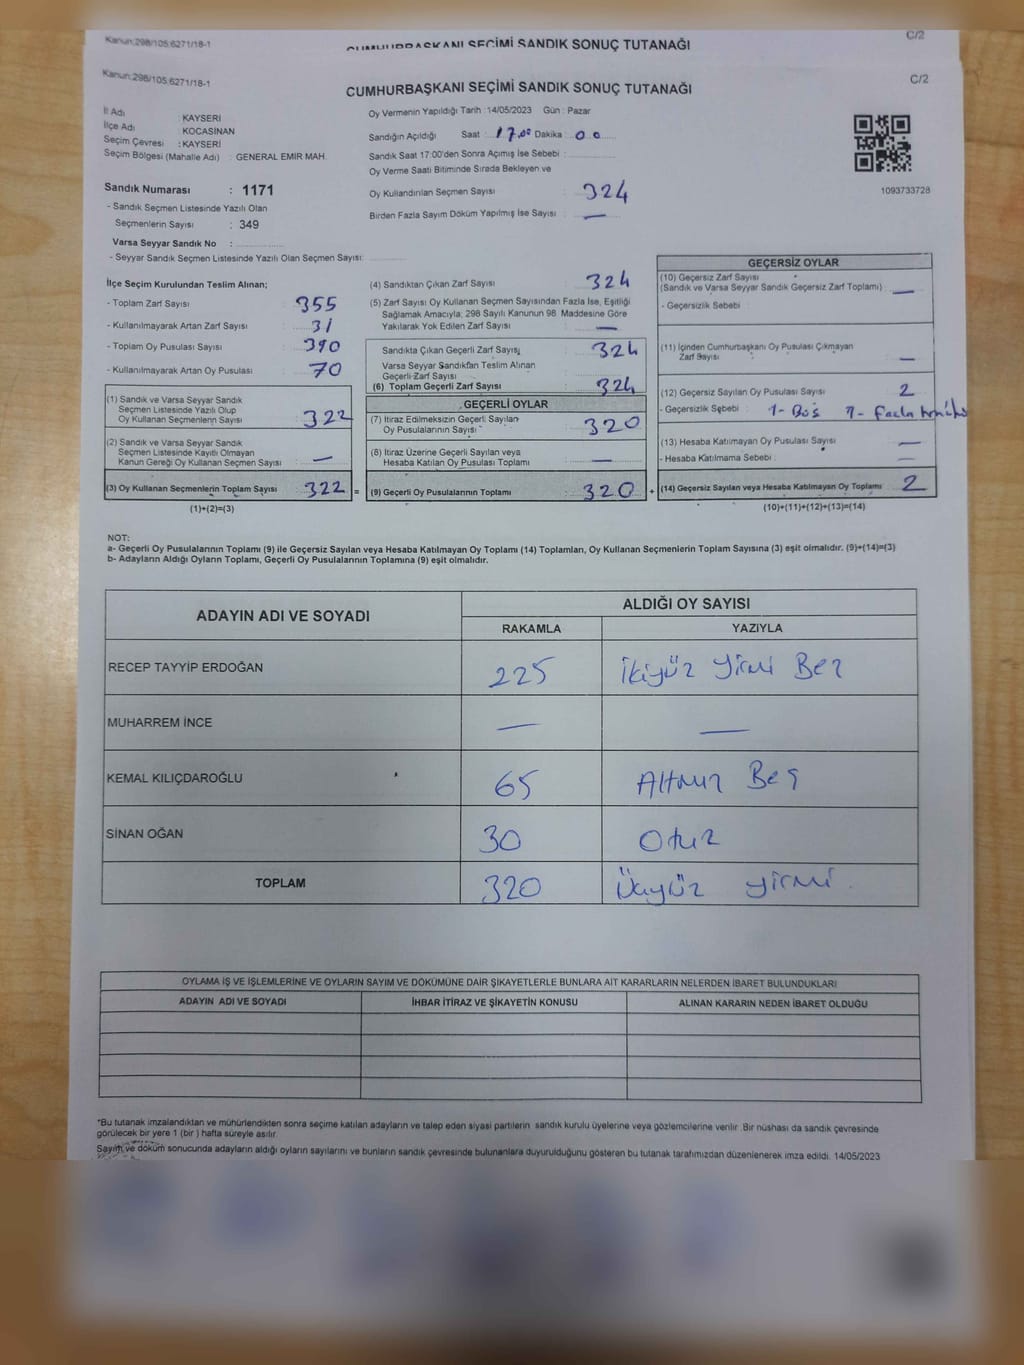 Kanun:298/105;6271/18-1
CUMHURBAŞKANI SEÇİMİ SANDIK SONUÇ TUTANAĞI
C/2
Kanun:298/105;6271/18-1
CUMHURBAŞKANI SEÇİMİ SANDIK SONUÇ TUTANAĞI
C/2
İl Adı : KAYSERİ
İlçe Adı : KOCASİNAN
Seçim Çevresi : KAYSERİ
Seçim Bölgesi (Mahalle Adı) : GENERAL EMİR MAH.
Sandık Numarası : 1171
- Sandık Seçmen Listesinde Yazılı Olan
Seçmenlerin Sayısı : 349
Varsa Seyyar Sandık No :
- Seyyar Sandık Seçmen Listesinde Yazılı Olan Seçmen Sayısı:
Oy Vermenin Yapıldığı Tarih :14/05/2023 Gün : Pazar
Sandığın Açıldığı Saat : 17.00 Dakika : 00
Sandık Saat 17:00'den Sonra Açımış İse Sebebi :
Oy Verme Saati Bitiminde Sırada Bekleyen ve
Oy Kullandırılan Seçmen Sayısı : 324
Birden Fazla Sayım Döküm Yapılmış İse Sayısı : —
1093733728
İlçe Seçim Kurulundan Teslim Alınan;
- Toplam Zarf Sayısı : 355
- Kullanılmayarak Artan Zarf Sayısı : 31
- Toplam Oy Pusulası Sayısı : 390
- Kullanılmayarak Artan Oy Pusulası : 70
(1) Sandık ve Varsa Seyyar Sandık
Seçmen Listesinde Yazılı Olup
Oy Kullanan Seçmenlerin Sayısı : 322
(2) Sandık ve Varsa Seyyar Sandık
Seçmen Listesinde Kayıtlı Olmayan
Kanun Gereği Oy Kullanan Seçmen Sayısı : —
(3) Oy Kullanan Seçmenlerin Toplam Sayısı : 322 =
(1)+(2)=(3)
(4) Sandıktan Çıkan Zarf Sayısı : 324
(5) Zarf Sayısı Oy Kullanan Seçmen Sayısından Fazla İse, Eşitliği
Sağlamak Amacıyla; 298 Sayılı Kanunun 98. Maddesine Göre
Yakılarak Yok Edilen Zarf Sayısı : —
Sandıkta Çıkan Geçerli Zarf Sayısı : 324
Varsa Seyyar Sandıktan Teslim Alınan
Geçerli Zarf Sayısı :
(6) Toplam Geçerli Zarf Sayısı : 324
GEÇERLİ OYLAR
(7) İtiraz Edilmeksizin Geçerli Sayılan
Oy Pusulalarının Sayısı : 320
(8) İtiraz Üzerine Geçerli Sayılan veya
Hesaba Katılan Oy Pusulaları Toplamı : —
(9) Geçerli Oy Pusulalarının Toplamı : 320 +
GEÇERSİZ OYLAR
(10) Geçersiz Zarf Sayısı
(Sandık ve Varsa Seyyar Sandık Geçersiz Zarf Toplamı) : —
- Geçersizlik Sebebi :
(11) İçinden Cumhurbaşkanı Oy Pusulası Çıkmayan
Zarf Sayısı : —
(12) Geçersiz Sayılan Oy Pusulası Sayısı : 2
- Geçersizlik Sebebi : 1- Boş 1- Fazla
(13) Hesaba Katılmayan Oy Pusulası Sayısı : —
- Hesaba Katılmama Sebebi : —
(14) Geçersiz Sayılan veya Hesaba Katılmayan Oy Toplamı : 2
(10)+(11)+(12)+(13)=(14)
NOT:
a- Geçerli Oy Pusulalarının Toplamı (9) ile Geçersiz Sayılan veya Hesaba Katılmayan Oy Toplamı (14) Toplamları, Oy Kullanan Seçmenlerin Toplam Sayısına (3) eşit olmalıdır. (9)+(14)=(3)
b- Adayların Aldığı Oyların Toplamı, Geçerli Oy Pusulalarının Toplamına (9) eşit olmalıdır.
ADAYIN ADI VE SOYADI
ALDIĞI OY SAYISI
RAKAMLA YAZIYLA
RECEP TAYYİP ERDOĞAN 225 İkiyüz Yirmi Beş
MUHARREM İNCE — —
KEMAL KILIÇDAROĞLU 65 Altmış Beş
SİNAN OĞAN 30 Otuz
TOPLAM 320 Üçyüz yirmi
OYLAMA İŞ VE İŞLEMLERİNE VE OYLARIN SAYIM VE DÖKÜMÜNE DAİR ŞİKAYETLERLE BUNLARA AİT KARARLARIN NELERDEN İBARET BULUNDUKLARI
ADAYIN ADI VE SOYADI İHBAR İTİRAZ VE ŞİKAYETİN KONUSU ALINAN KARARIN NEDEN İBARET OLDUĞU
*Bu tutanak imzalandıktan ve mühürlendikten sonra seçime katılan adayların ve talep eden siyasi partilerin sandık kurulu üyelerine veya gözlemcilerine verilir. Bir nüshası da sandık çevresinde
görülecek bir yere 1 (bir ) hafta süreyle asılır.
Sayım ve döküm sonucunda adayların aldığı oyların sayılarını ve bunların sandık çevresinde bulunanlara duyurulduğunu gösteren bu tutanak tarafımızdan düzenlenerek imza edildi. 14/05/2023